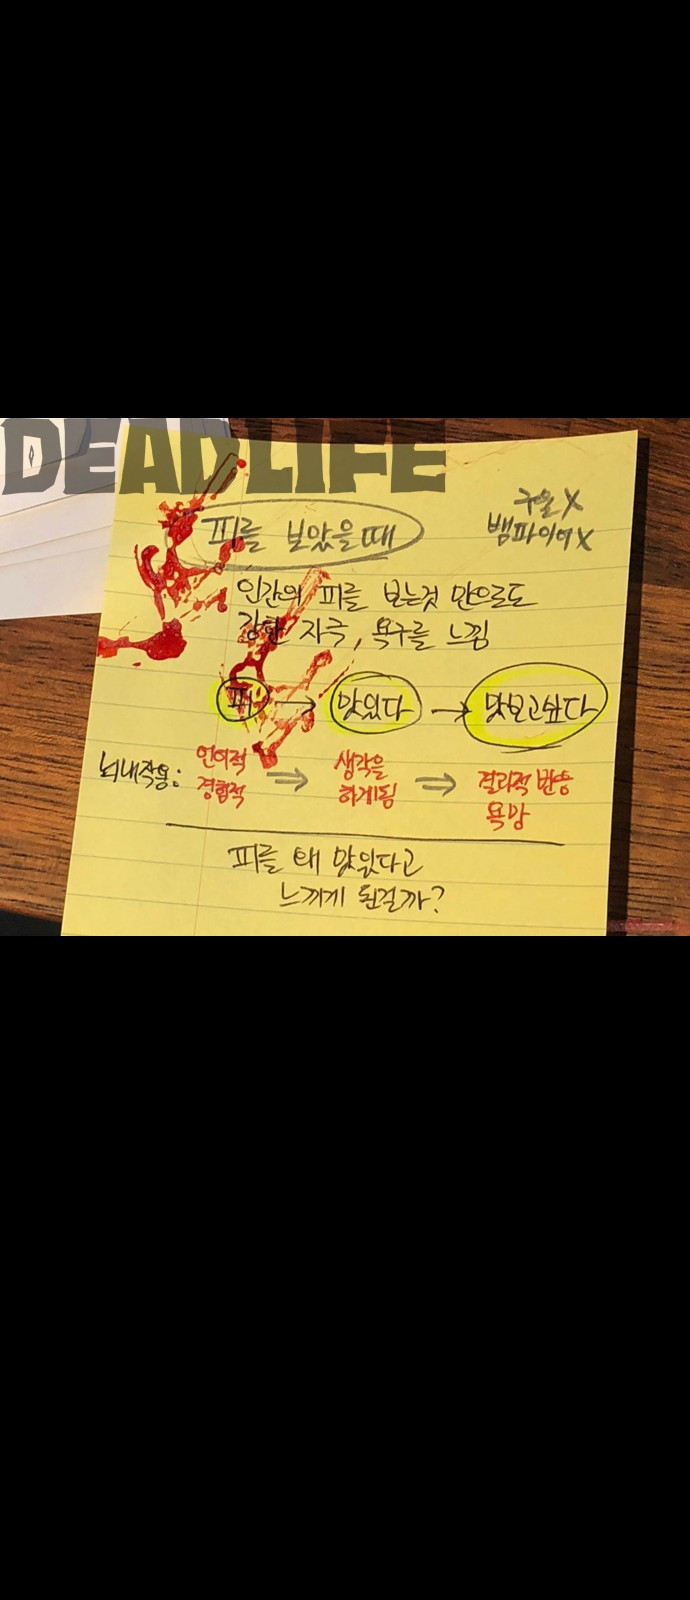 DEADLIFE
구울 X
뱀파이어 X
피를 보았을 때
인간의 피를 보는것 만으로도
강한 자극, 욕구를 느낌
피 → 맛있다 → 맛보고싶다
뇌내작용: 언어적 경험적 ⇒ 생각을 하게됨 ⇒ 반응 욕망
피를 왜 맛있다고
느끼게 된걸까?